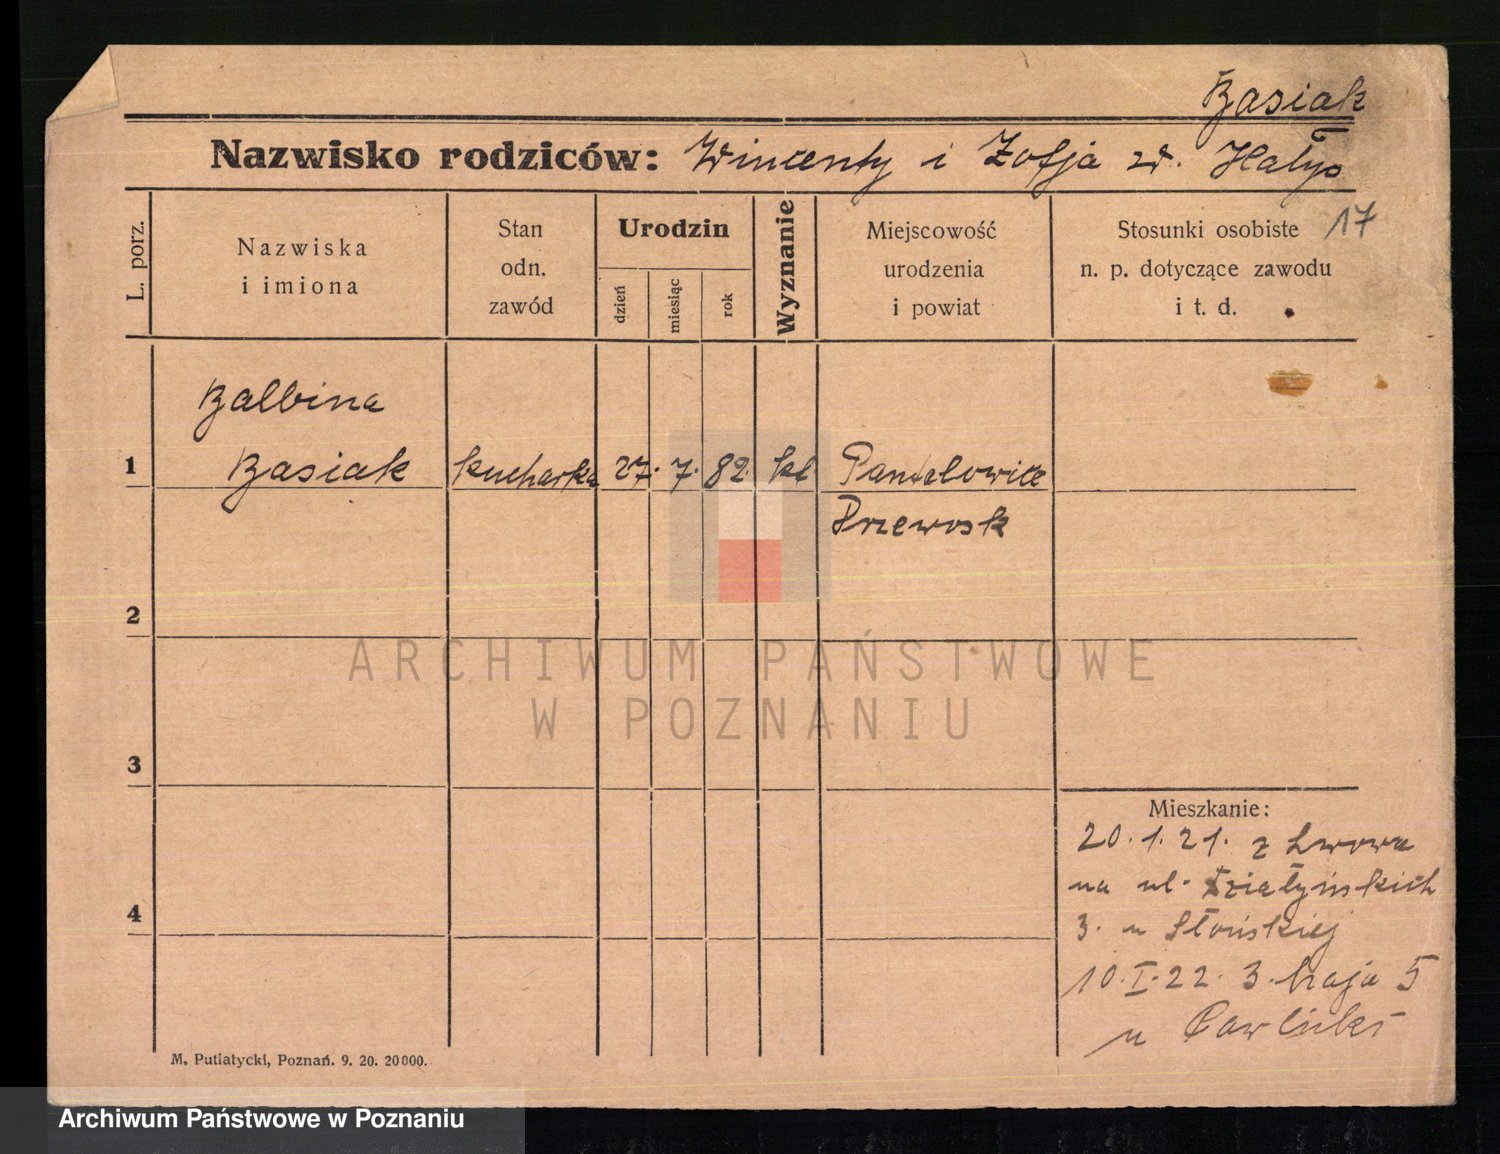 Basiak
Nazwisko rodziców: Wincenty i Zofja z d. Hałys
17
L. porz.
Nazwiska
i imiona
Stan
odn.
zawód
Urodzin
dzień
miesiąc
rok
Wyznanie
Miejscowość
urodzenia
i powiat
Stosunki osobiste
n. p. dotyczące zawodu
i t. d.
Balbina
1 Basiak kucharka 27. 7. 82. kt
Przeworsk
2
3
4
Mieszkanie:
20.1.21. z Lwowa
na ul. Działyńskich
3. u Słońskiej
10.I.22. 3. Maja 5
u
M. Putiatycki, Poznań. 9. 20. 20000.
ARCHIWUM PAŃSTWOWE
W POZNANIU
Archiwum Państwowe w Poznaniu